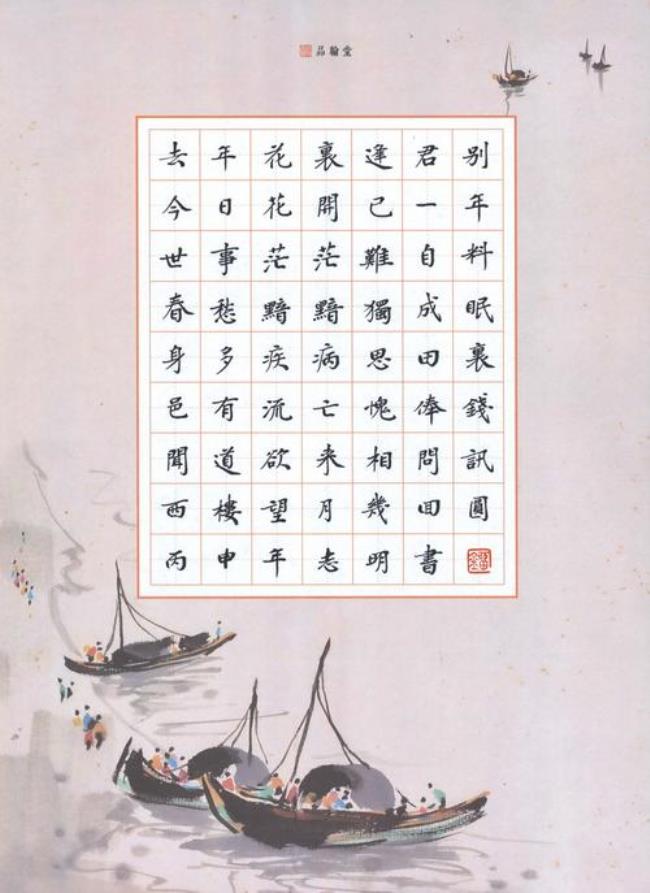 品翰堂
去年花裏逢君别
今日花開已一年
世事茫茫難自料
春愁黯黯獨成眠
身多疾病思田裏
邑有流亡愧俸錢
聞道欲来相問訊
西樓望月幾回圓
丙申年志明書